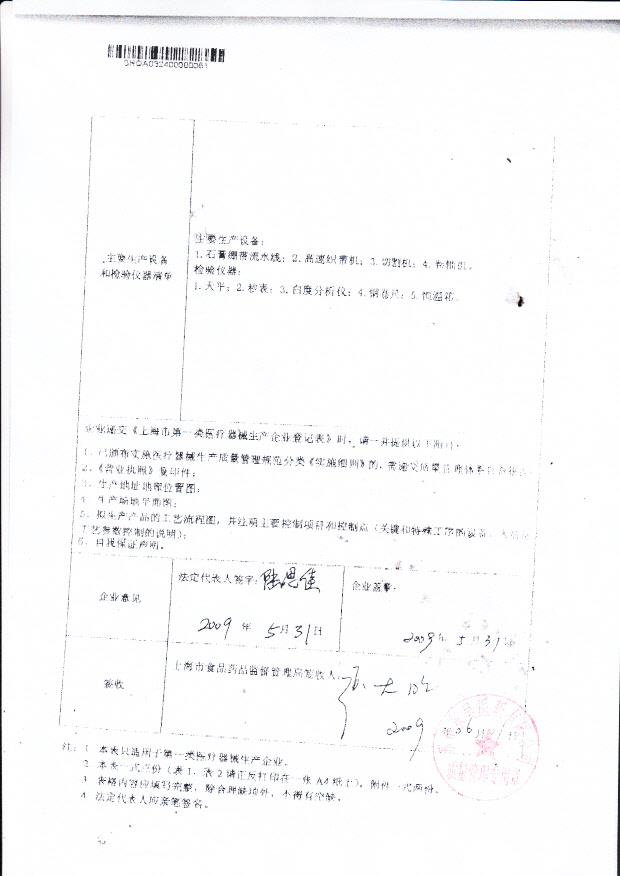 SHDA032400000061
主要生产设备
和检验仪器清单
主要生产设备:
1.石膏绷带流水线; 2.高速织带机; 3.切割机; 4.卷带机。
检验仪器:
1.天平; 2.秒表; 3.白度分析仪; 4.钢卷尺; 5.恒温箱。
企业递交《上海市第一类医疗器械生产企业登记表》时, 请一并提供以下附件:
1、已颁布实施医疗器械生产质量管理规范分类《实施细则》的, 需递交质量管理体系
2、《营业执照》复印件;
3、生产地址地部位置图;
4、生产场地平面图;
5、拟生产产品的工艺流程图, 并注明主要控制项目和控制点 (关键和特殊工序的设备、人员及
工艺参数控制的说明);
6、自我保证声明。
企业意见
法定代表人签字:
2009 年 5月31日
企业盖章:
2009年 5月31日
签收
上海市食品药品监督管理局签收人:
2009 年06月 日
注: 1 本表只适用于第一类医疗器械生产企业。
2 本表一式三份 (表1、表2请正反打印在一张A4纸上), 附件一式两份。
3 表格内容应填写完整, 除合理缺项外, 不得有空缺。
4 法定代表人应亲笔签名。